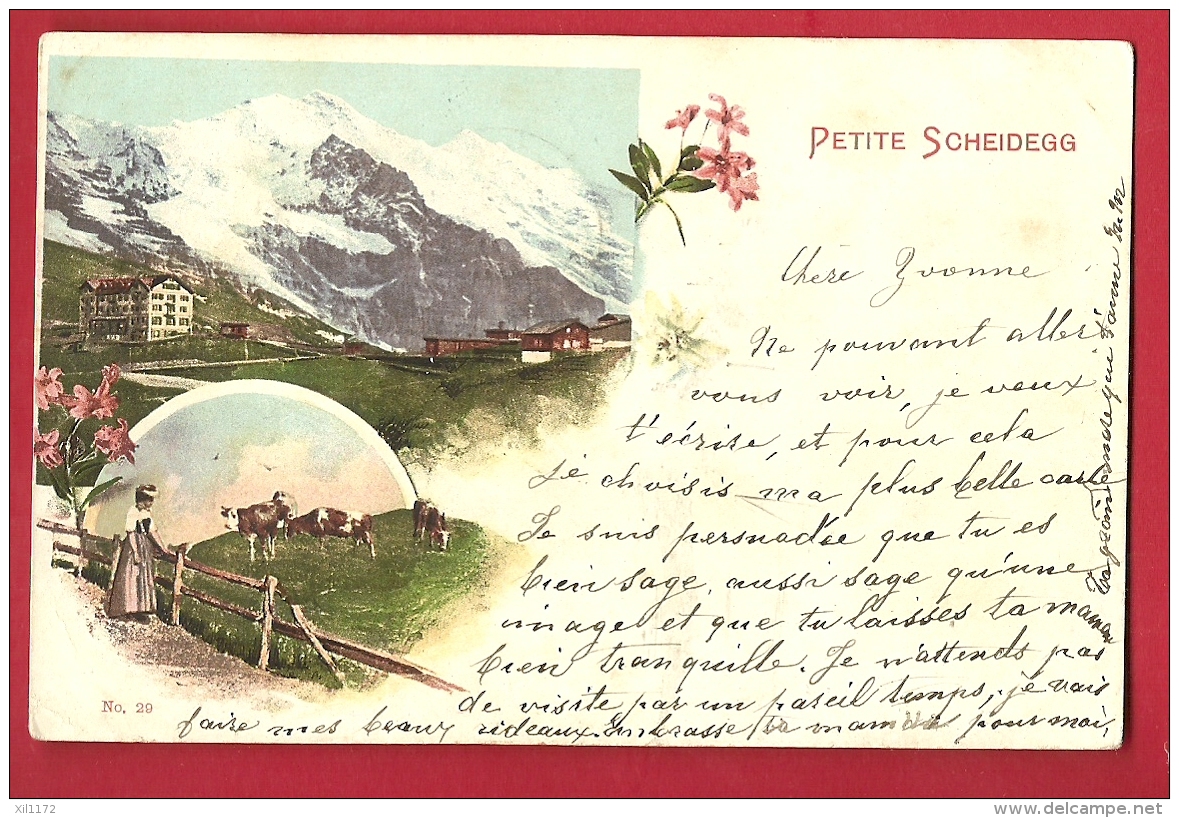 PETITE SCHEIDEGG
Chère Yvonne
Ne pouvant aller
vous voir, je veux
t'écrire, et pour cela
je choisis ma plus belle carte
Je suis persuadée que tu es
bien sage, aussi sage qu'une
image et que tu laisses ta maman
bien tranquille. Je n'attends pas
de visite par un pareil temps, je vais
faire mes beaux rideaux. Embrasse ta maman pour moi,
ta grand
No. 29
xil1172
delcampe.net